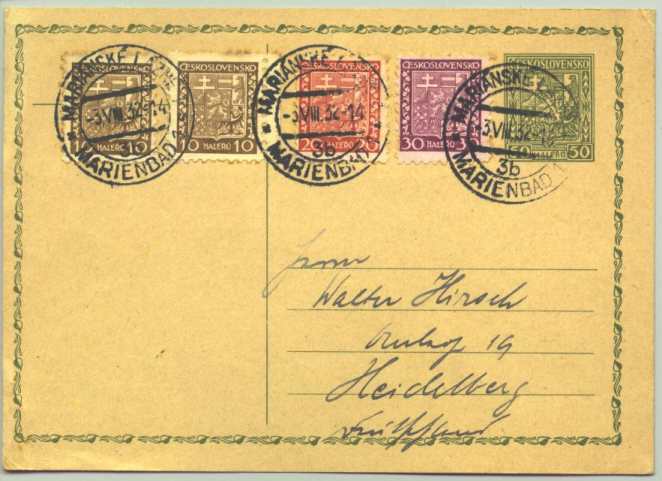 ČESKOSLOVENSKO ČESKOSLOVENSKO ČESKOSLOVENSKO ČESKOSLOVENSKO
10 HALÉŘŮ 10 10 HALÉŘŮ 10 20 HALÉŘŮ 30 HALÉŘŮ 50 HALÉŘŮ 50
MARIÁNSKÉ LÁZNĚ
-3.VIII.32.-14
MARIENBAD 1
MARIÁNSKÉ
-3.VIII.32-14
3b
MARIENBAD
MARIÁNSKÉ
3.VIII.32-1
3b
MARIENBAD 1
Herrn
Walter Hirsch
19
Heidelberg